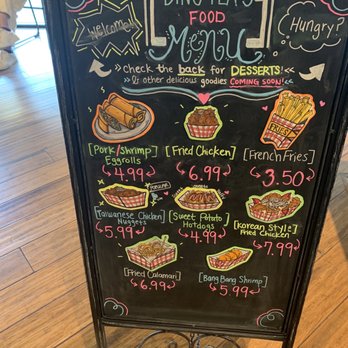 Welcome!
FOOD
MENU
Hungry?
check the back for DESSERTS!
& other delicious goodies COMING SOON!
FRIES
[Pork/Shrimp] [Fried Chicken] [French Fries]
Eggrolls
4.99 6.99 3.50
[Taiwanese Chicken] [Sweet Potato] [Korean Style]
Nuggets Hotdogs Fried Chicken
5.99 4.99 7.99
[Fried Calamari] [Bang Bang Shrimp]
6.99 5.99